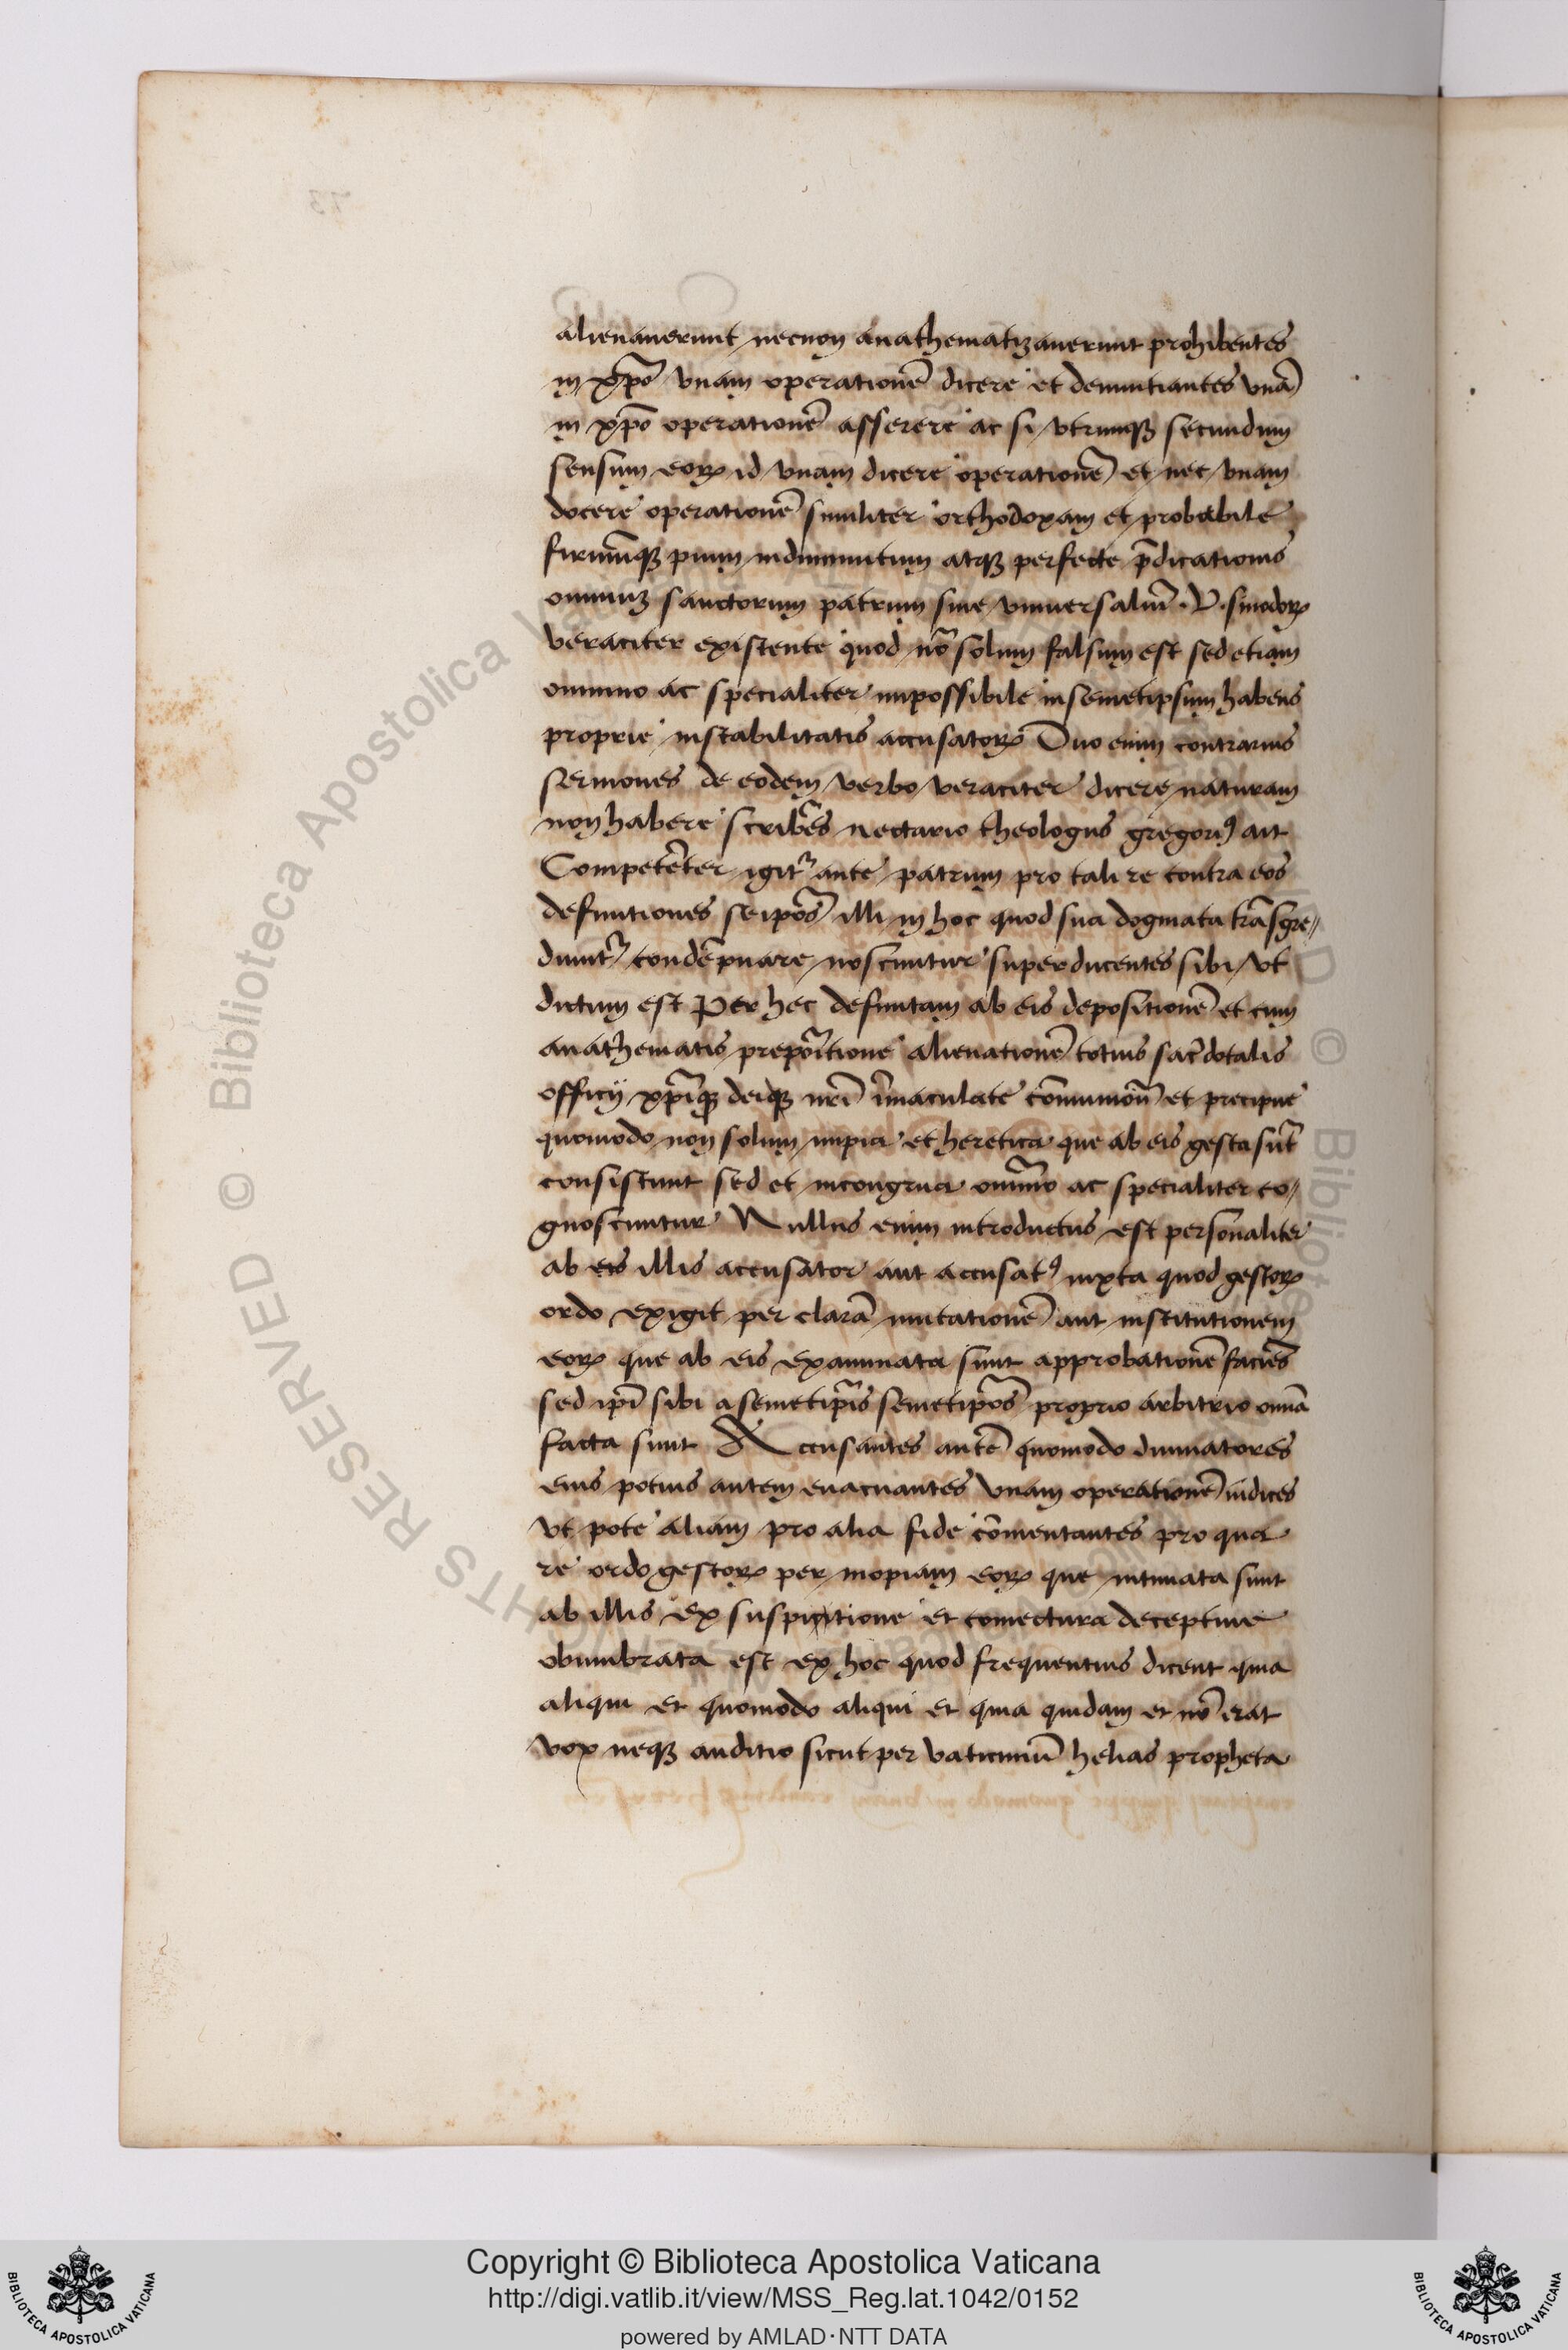 alienauerunt necnon anathematizauerunt prohibentes
in xp̄o vnam operationē dicere et denuntiantes vnā
in xp̄o operationē asserere ac si vtrumqꝫ secundum
sensum eoꝝ id vnam dicere operationē et nec vnam
docere operationē similiter orthodoxam et probabile
firmūqꝫ pium indiminutum atqꝫ perfecte p̄dicationis
omniuꝫ sanctorum patrum siue vniuersaliū .V. sinodoꝝ
veraciter existente quod nō solum falsum est sed etiam
omnino ac specialiter impossibile in semetipsum habens
proprie instabilitatis accusatoꝝ Duo enim contrarius
sermones de eodem verbo veraciter dicere naturam
non habere scribēs nectario theologus gregoriꝰ ait
Competēter igitr̄ ante patrum pro tali re contra eos
definitiones seip̄os illi in hoc quod sua dogmata trāsgre
diuntr̄ condēpnare noscuntur superducentes sibi vt
dictum est Per hec definitam ab eis depositionē et cum
anathematis prepōitione alienationē totius sac̄dotalis
officij xp̄iqꝫ deiqꝫ nr̄i īmaculate cōmunionē et precipue
quomodo non solum impia et heretica que ab eis gesta sūt
consistunt sed et incongrua omīno ac specialiter co
gnoscuntur Nullus enim introductus est personaliter
ab eis illis accusator aut accusatꝰ iuxta quod gestoꝝ
ordo exigit per clarā imitationē aut institutionem
eoꝝ que ab eis examinata sunt approbationē faciēs
sed ip̄i sibi a semetip̄is semetip̄os proprio arbitrio omīa
facta sunt Accusantes autē quomodo diuinatores
eius potius autem euacuantes vnam operationē iudices
vt pote aliam pro alia fide cōmentantes pro qua
re ordo gestoꝝ per inopiam eoꝝ que intimata sunt
ab illis ex suspicitione et coniectura deceptiue
obumbrata est ex hoc quod frequentius dicent quia
aliqui et quomodo aliqui et quia quidam et nō erat
vox neqꝫ auditio sicut per vaticiniū helias propheta
Copyright © Biblioteca Apostolica Vaticana
http://digi.vatlib.it/view/MSS_Reg.lat.1042/0152
powered by AMLAD·NTT DATA